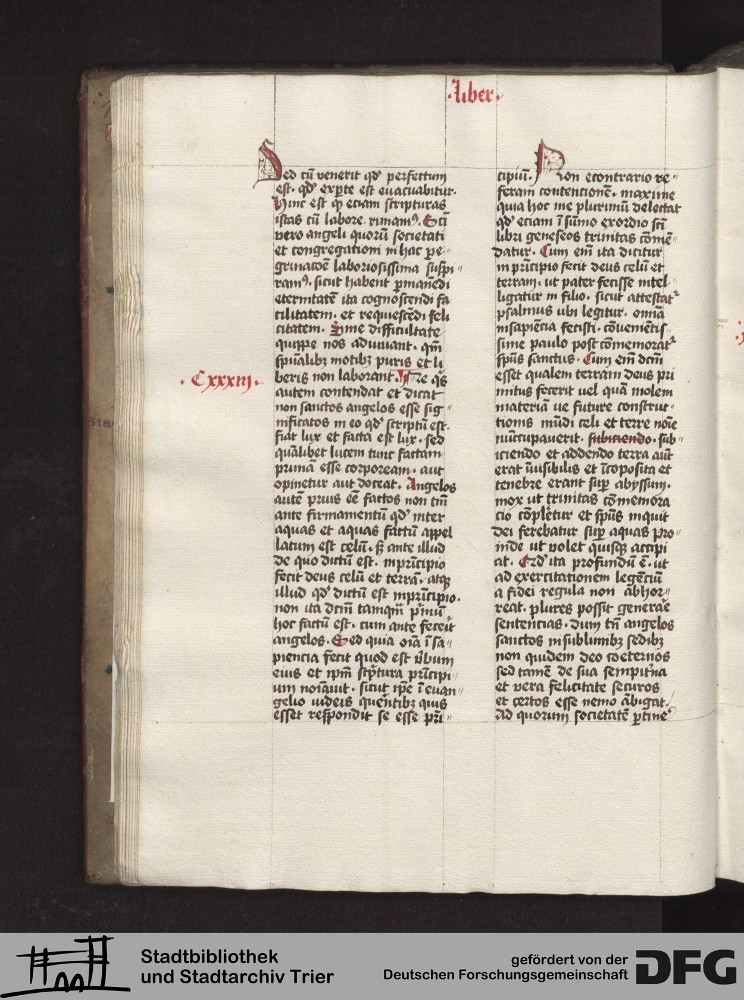 ·liber·
Sed cū venerit qđ perfectum
est· qđ exꝑte est euacuabitur·
Hinc est qͥ eciam scripturas
istas cū labore rimamꝰ· Scī
vero angeli quorū societati
et congregationi in hac pe〃
grinacōe laboriosissima suspi〃
ramꝰ· sicut habent ꝑmanēdi
eternitatē ita cognoscendi fa
cilitatem· et requiescēdi feli
citatem· Sine difficultate
quippe nos adiuuant· qm̄
spūalibꝫ motibꝫ puris et li
beris non laborant· Ne qͥs
·Cxxxiij·
autem contendat et dicat
non sanctos angelos esse sig〃
nificatos in eo qđ scriptū est·
fiat lux et facta est lux· sed
quālibet lucem tunc factam
primā esse corpoream· aut
opinetur aut doceat· Angelos
autē prius eē factos non tm̄
ante firmamentū qđ inter
aquas et aquas factū appel
latum est celū· sꝫ ante illud
de quo dictū est· inprīcipio
fecit deus celū et terrā· atqꝫ
illud qđ dictū est inprīcipio·
non ita dcm̄ tamqm̄ pͥmū
hoc factū est· cum ante fecerit
angelos· Sed quia oīa ī sa〃
piencia fecit quod est v̄bum
eius et ip̄m scp̄tura prīcipi〃
um noīauit· sicut ip̄e ī euan〃
gelio iudeis querētibꝫ quis
esset respondit se esse prī〃
cipiū· Non econtrario re〃
feram contencionē· maxime
quia hoc me plurimū delectat
qđ eciam ī sūmo exordio scī
libri geneseos trinitas cōmē〃
datur· Cum em̄ ita dicitur
in prīcipio fecit deus celū et
terram· ut pater fecisse intel〃
ligatur in filio· sicut attestatᷣ
psalmus ubi legitur· omīa
insapiēcia fecisti· cōuenītis〃
sime paulo post cōmemoratᷣ
spūs sanctus· Cum em̄ dcm̄
esset qualem terram deus pri
mitus fecerit uel quā molem
materiā ue future construc〃
tionis mūdi celi et terre noīe
nūcupauerit· subiciendo· sub〃
iciendo et addendo terra aūt
erat īuisibilis et īcoposita et
tenebre erant suꝑ abyssum·
mox ut trinitas cōmemora
cio cōpletur et spūs inquit
dei ferebatur suꝑ aquas pro〃
inde ut volet quisqꝫ accipi
at· Qđ ita profundū ē· ut
ad exercitationem legēciū
a fidei regula non abhor〃
reat· plures possit generaē
sentencias· dum tn̄ angelos
sanctos insublimibꝫ sedibꝫ
non quidem deo coeternos
sed tamē de sua sempitͥna
et vera felicitate securos
et certos esse nemo ābigat·
Ad quorum societatē ꝑtineᷣ
Stadtbibliothek
und Stadtarchiv Trier
gefördert von der
Deutschen Forschungsgemeinschaft
DFG